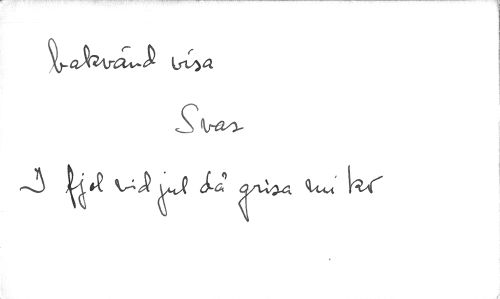 bakvänd visa
Svar
I fjol vid jul då grisa mi ko